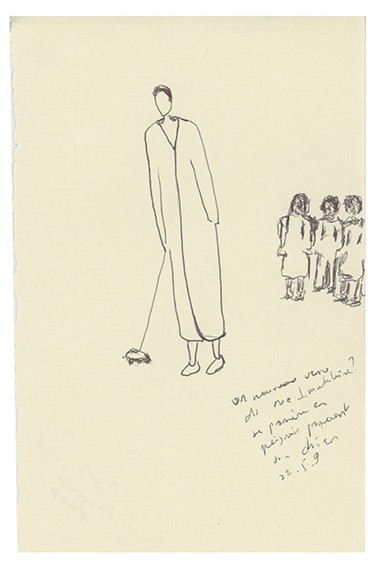 un nouveau venu
de rue
se promène en
peignoir promenant
un chien
22.5.9